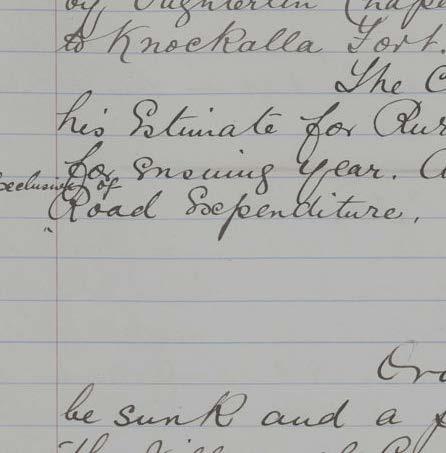 by Oughterlin Chape
to Knockalla Fort.
The C
his Estimate for Rur
for ensuing year. A
exclusive of
Road Expenditure,
Ord
be sunk and a p